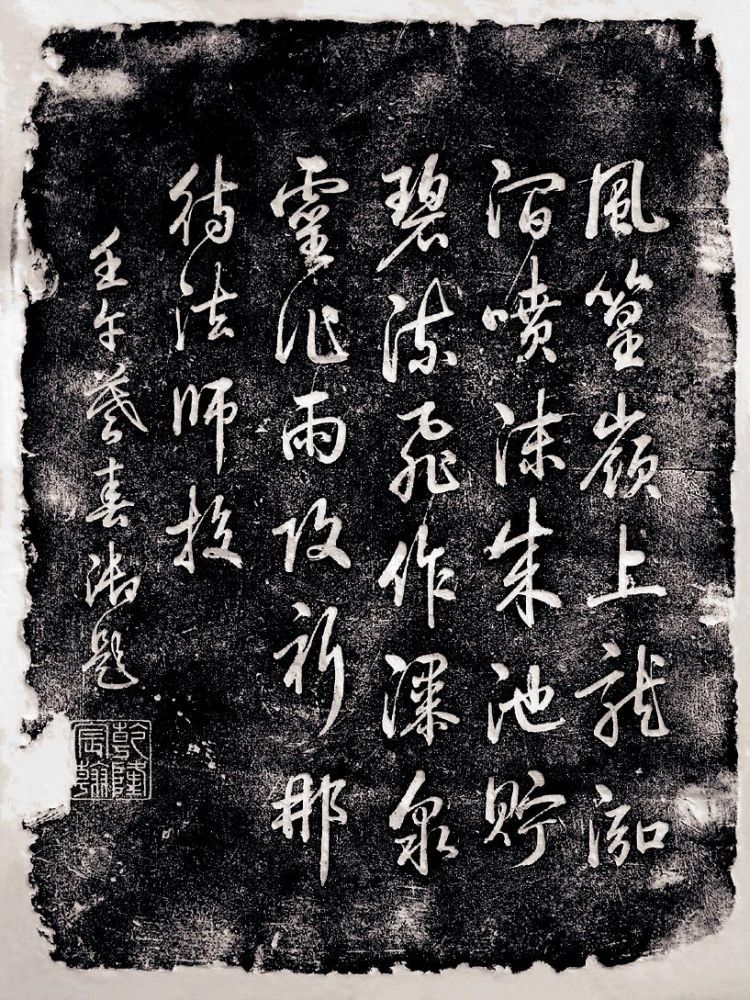 風篁嶺上龍泓
澗噴沫成池貯
碧流飛作瀑泉
靈作雨祈那
待法師投
壬午暮春御題
乾隆宸翰